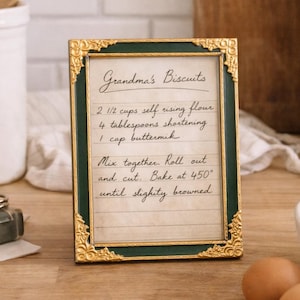 Grandma's Biscuits
2 1/2 cups self rising flour
4 tablespoons shortening
1 cup buttermik
Mix together. Roll out
and cut. Bake at 450°
until slighity browned